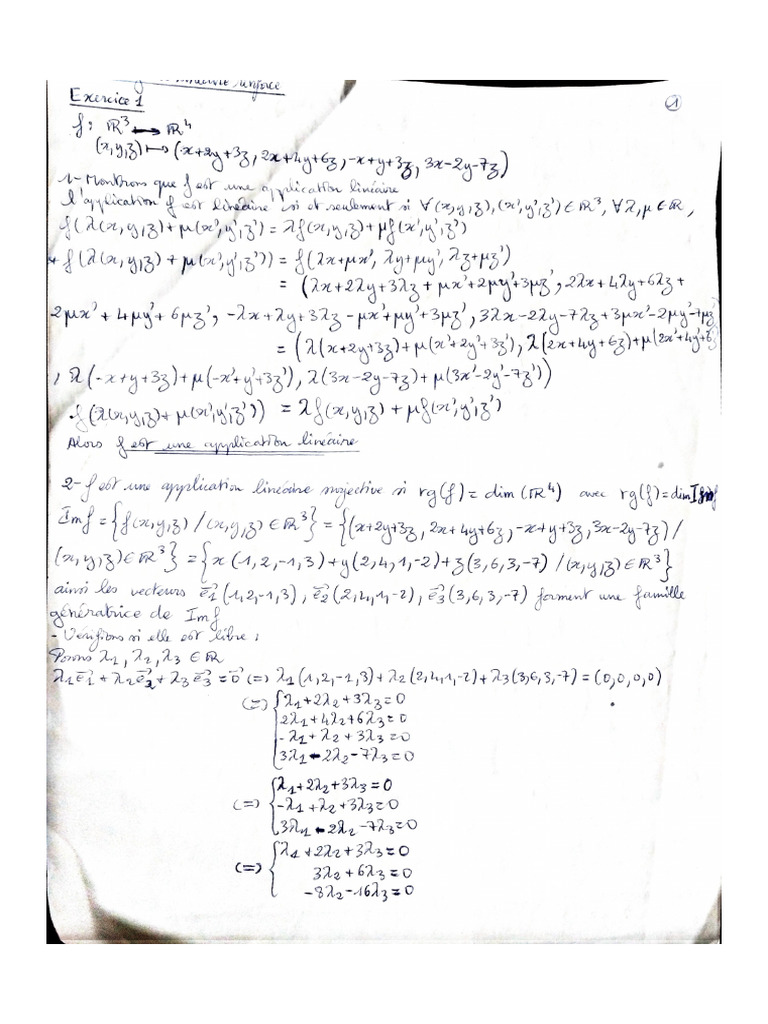 renforcé
Exercice 1
①
f: ℝ³ ⟼ ℝ⁴
(x,y,z) ⟼ (-x+2y+3z, 2x+4y+6z, -x+y+3z, 3x-2y-7z)
1- Montrons que f est une application linéaire
l'application f est linéaire si et seulement si ∀(x,y,z),(x',y',z') ∈ ℝ³, ∀λ,μ ∈ ℝ,
f(λ(x,y,z)+μ(x',y',z')) = λf(x,y,z)+μf(x',y',z')
* f(λ(x,y,z) + μ(x',y',z')) = f(λx+μx', λy+μy', λz+μz')
= (λx+2λy+3λz + μx'+2μy'+3μz', 2λx+4λy+6λz+
2μx'+4μy'+6μz', -λx+λy+3λz-μx'+μy'+3μz', 3λx-2λy-7λz+3μx'-2μy'-7μz'
= (λ(x+2y+3z)+μ(x'+2y'+3z'), λ(2x+4y+6z)+μ(2x'+4y'+6z')
, λ(-x+y+3z)+μ(-x'+y'+3z'), λ(3x-2y-7z)+μ(3x'-2y'-7z'))
f(λ(x,y,z)+μ(x',y',z')) = λf(x,y,z)+μf(x',y',z')
Alors f est une application linéaire
2- f est une application linéaire surjective si rg(f) = dim(ℝ⁴) avec rg(f)=dim Imf
Imf = {f(x,y,z) / (x,y,z) ∈ ℝ³} = {(x+2y+3z, 2x+4y+6z, -x+y+3z, 3x-2y-7z) /
(x,y,z) ∈ ℝ³} = {x(1,2,-1,3)+y(2,4,1,-2)+z(3,6,3,-7) / (x,y,z) ∈ ℝ³}
ainsi les vecteurs e⃗1(1,2,-1,3), e⃗2(2,4,1,-2), e⃗3(3,6,3,-7) forment une famille
génératrice de Imf
- Vérifions si elle est libre :
Posons λ1, λ2, λ3 ∈ ℝ
λ1e⃗1+λ2e⃗2+λ3e⃗3=0⃗ (=) λ1(1,2,-1,3)+λ2(2,4,1,-2)+λ3(3,6,3,-7) = (0,0,0,0)
(=) { λ1+2λ2+3λ3=0
2λ1+4λ2+6λ3=0
-λ1+λ2+3λ3=0
3λ1-2λ2-7λ3=0
(=) { λ1+2λ2+3λ3=0
-λ1+λ2+3λ3=0
3λ1-2λ2-7λ3=0
(=) { λ1+2λ2+3λ3=0
3λ2+6λ3=0
-8λ2-16λ3=0